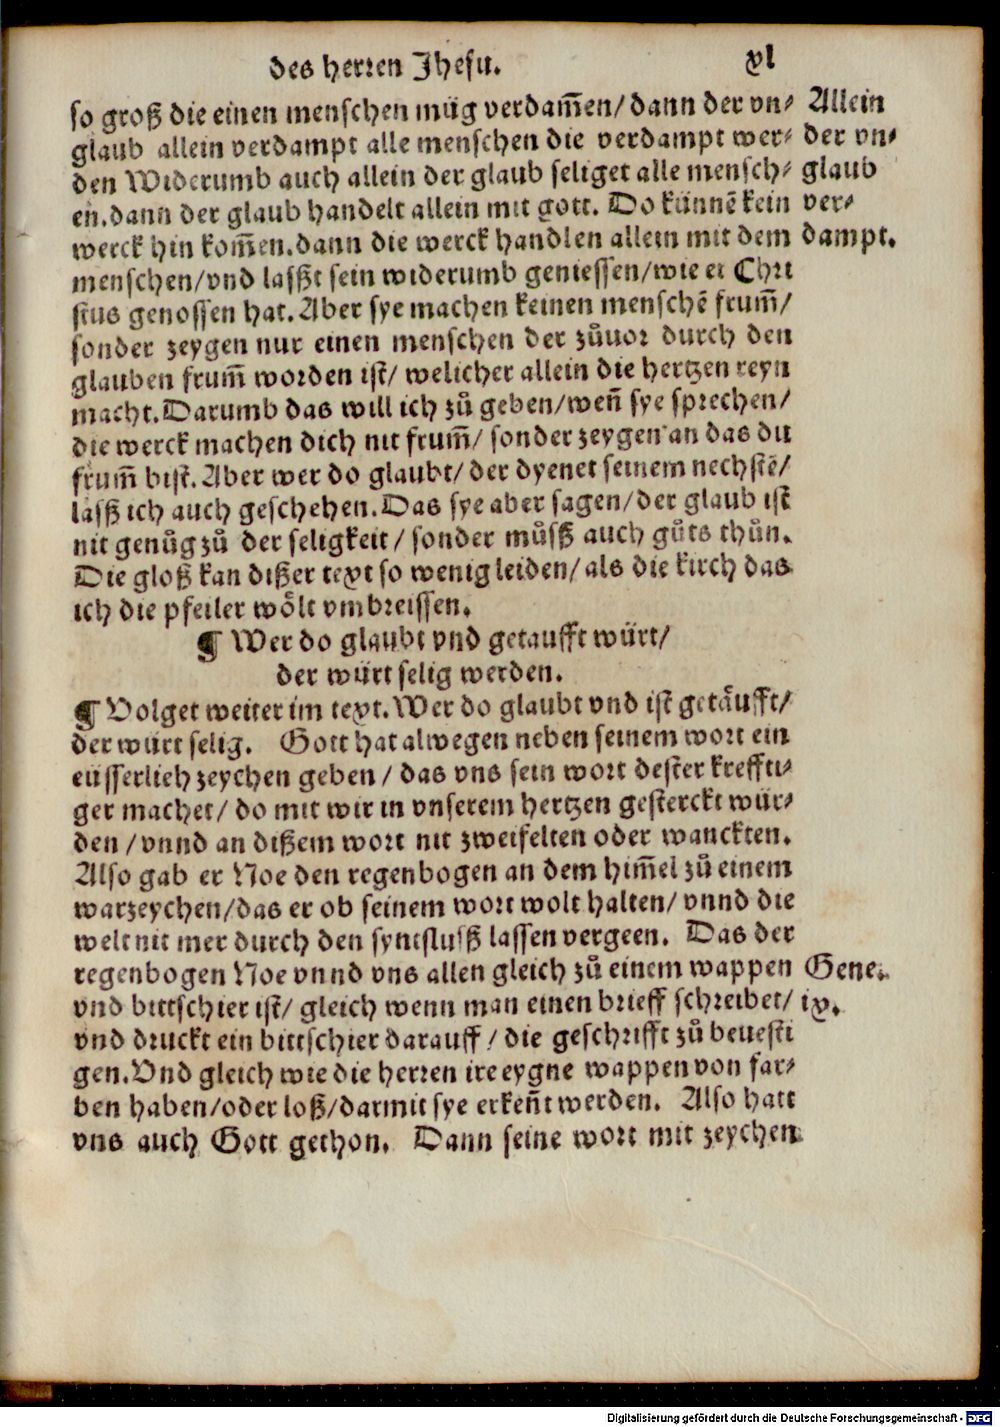 des herren Jhesu. xl
so groß die einen menschen müg verdam̄en/ dann der vn⸗
glaub allein verdampt alle menschen die verdampt wer⸗
den Widerumb auch allein der glaub seliget alle mensch⸗
en. dann der glaub handelt allein mit gott. Do künnē kein
werck hin kom̄en. dann die werck handlen allein mit dem
menschen/ vnd laßt sein widerumb geniessen/ wie er Chri
stus genossen hat. Aber sye machen keinen menschē frum̄/
sonder zeygen nur einen menschen der zůuor durch den
glauben frum̄ worden ist/ welicher allein die hertzen reyn
macht. Darumb das will ich zů geben/ wen̄ sye sprechen/
die werck machen dich nit frum̄/ sonder zeygen an das du
frum̄ bist. Aber wer do glaubt/ der dyenet seinem nechstē/
laß ich auch geschehen. Das sye aber sagen/ der glaub ist
nit genůg zů der seligkeit/ sonder můß auch gůts thůn.
Die gloß kan dißer text so wenig leiden/ als die kirch das
ich die pfeiler wȯlt vmbreissen.
¶ Wer do glaubt vnd getaufft würt/
der würt selig werden.
¶ Volget weiter im text. Wer do glaubt vnd ist getäufft/
der würt selig. Gott hat alwegen neben seinem wort ein
eüsserlich zeychen geben/ das vns sein wort dester kreffti⸗
ger machet/ do mit wir in vnserem hertzen gesterckt wür⸗
den/ vnnd an dißem wort nit zweifelten oder wanckten.
Also gab er Noe den regenbogen an dem him̄el zů einem
warzeychen/ das er ob seinem wort wolt halten/ vnnd die
welt nit mer durch den syntfluß lassen vergeen. Das der
regenbogen Noe vnnd vns allen gleich zů einem wappen
vnd bittschier ist/ gleich wenn man einen brieff schreibet/
vnd druckt ein bittschier darauff/ die geschrifft zů beuesti
gen. Vnd gleich wie die herren ire eygne wappen von far⸗
ben haben/ oder loß/ darmit sye erken̄t werden. Also hatt
vns auch Gott gethon. Dann seine wort mit zeychen
Allein
der vn⸗
glaub
ver⸗
dampt.
Gene.
ix.
Digitalisierung gefördert durch die Deutsche Forschungsgemeinschaft - DFG